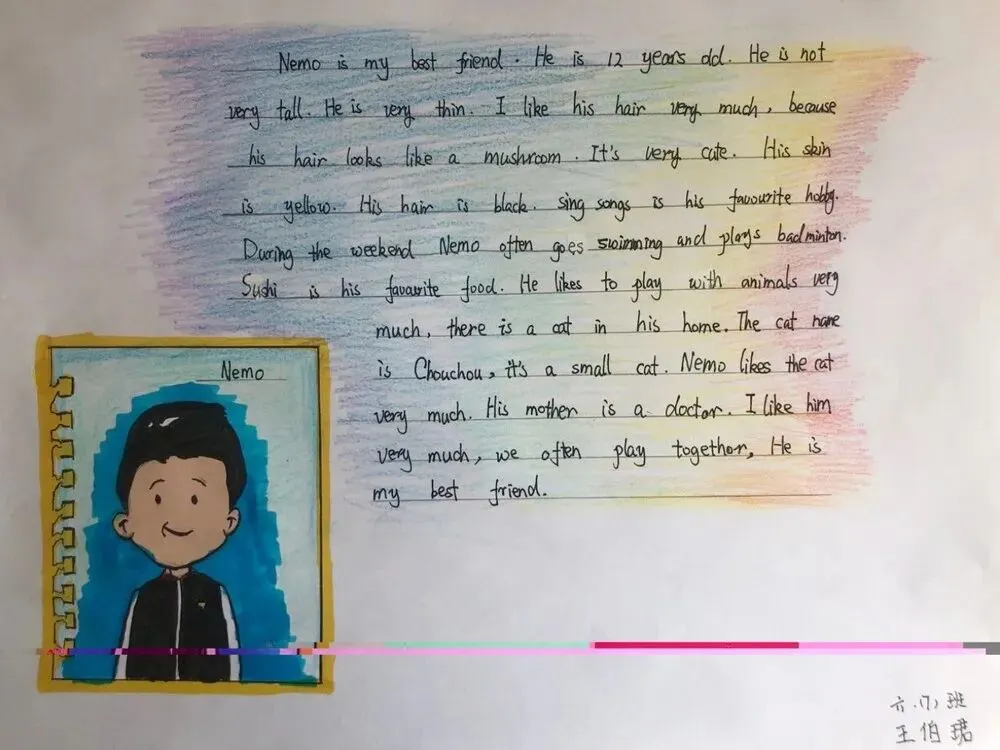 Nemo is my best friend. He is 12 years old. He is not
very tall. He is very thin. I like his hair very much, because
his hair looks like a mushroom. It's very cute. His skin
is yellow. His hair is black. sing songs is his favourite hobby.
During the weekend Nemo often goes swimming and plays badminton.
Sushi is his favourite food. He likes to play with animals very
much, there is a cat in his home. The cat name
is Chouchou, it's a small cat. Nemo likes the cat
very much. His mother is a doctor. I like him
very much, we often play together, He is
my best friend.
Nemo
六.(7)班
王伯珺